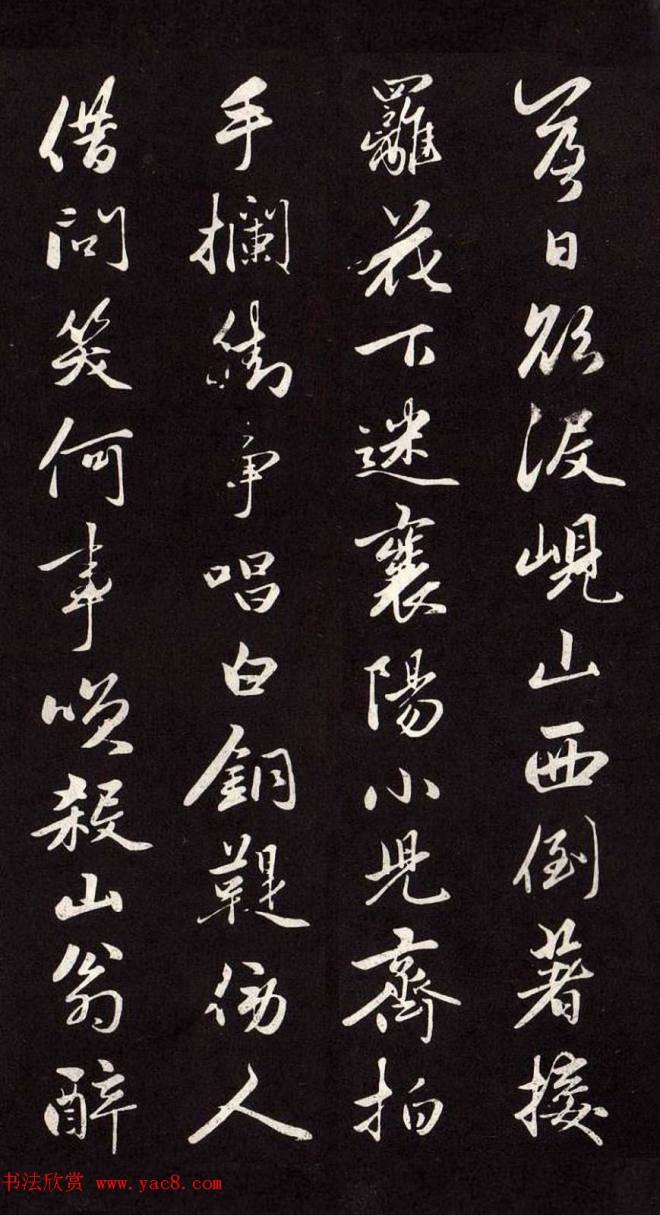 落日欲没岘山西倒著接
䍦花下迷襄陽小児齊拍
手攔街争唱白銅鞮傍人
借問笑何事噗殺山翁醉
书法欣赏 www.yac8.com